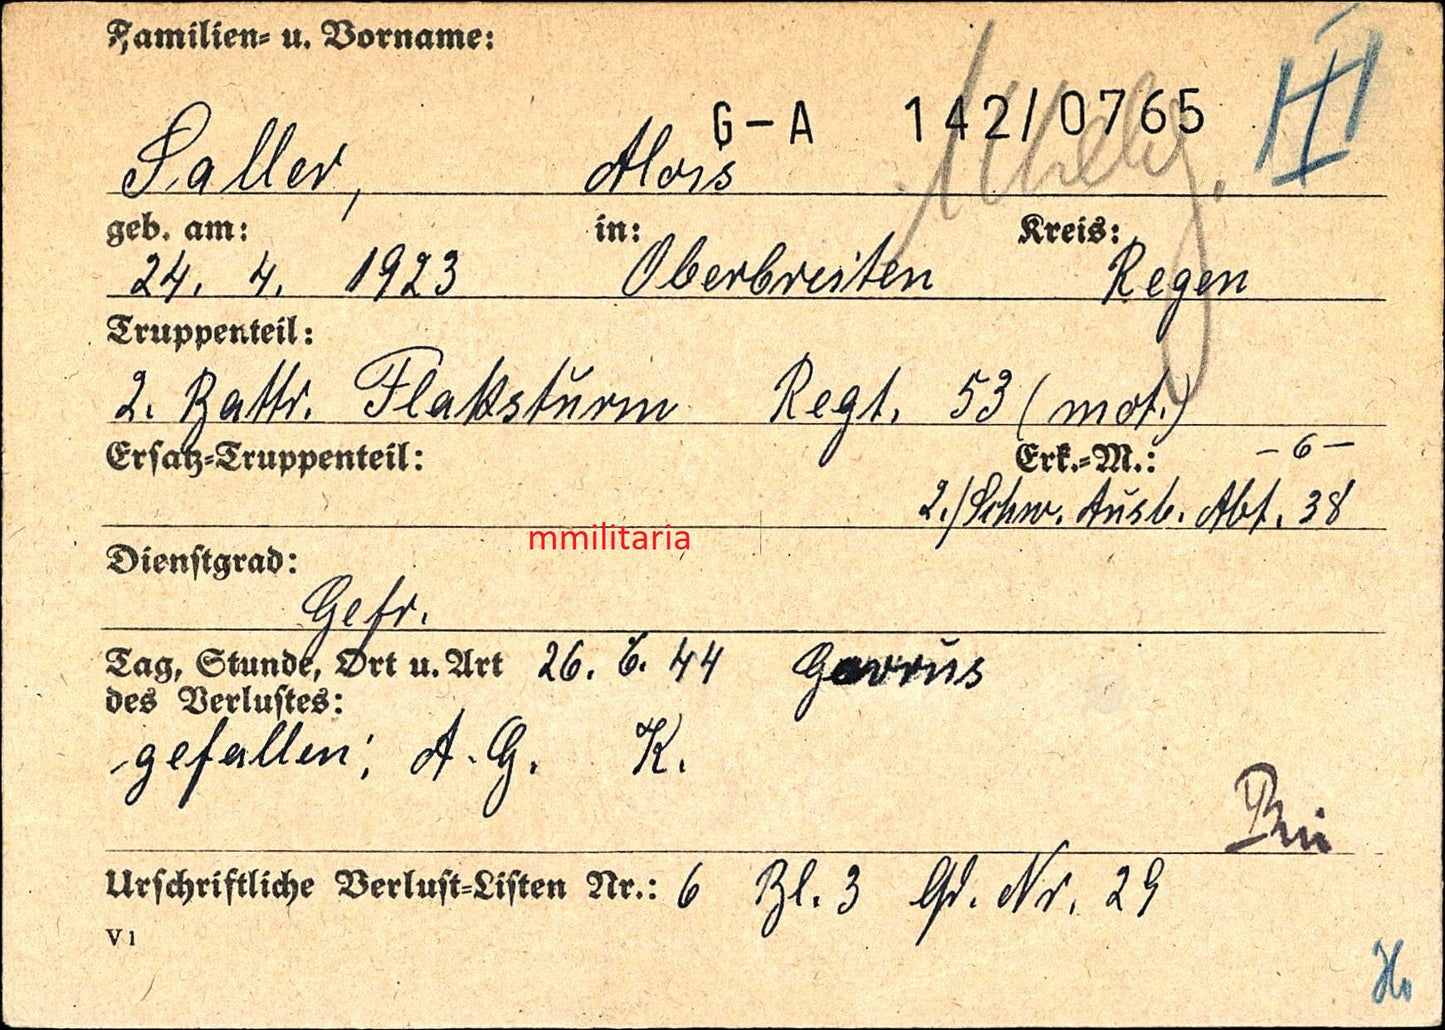 Familien- u. Vorname:
G-A 142/0765
Saller, Alois
geb. am: in: Kreis:
24. 4. 1923 Oberbreiten Regen
Truppenteil:
2. Battr. Flaksturm Regt. 53 (mot.)
Ersatz-Truppenteil: Erk.-M.: -6-
2./Schw. Ausb. Abt. 38
mmilitaria
Dienstgrad:
Gefr.
Tag, Stunde, Ort u. Art 26. 6. 44 Gavrus
des Verlustes:
gefallen; A. G. K.
Urschriftliche Verlust-Listen Nr.: 6 Bl. 3 lfd. Nr. 29
V 1